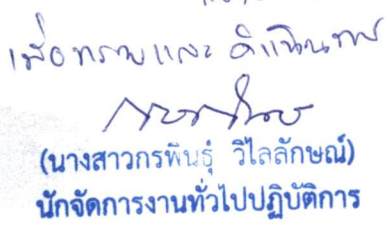 เพื่อทราบและ
(นางสาวกรพินธุ์ วิไลลักษณ์)
นักจัดการงานทั่วไปปฏิบัติการ